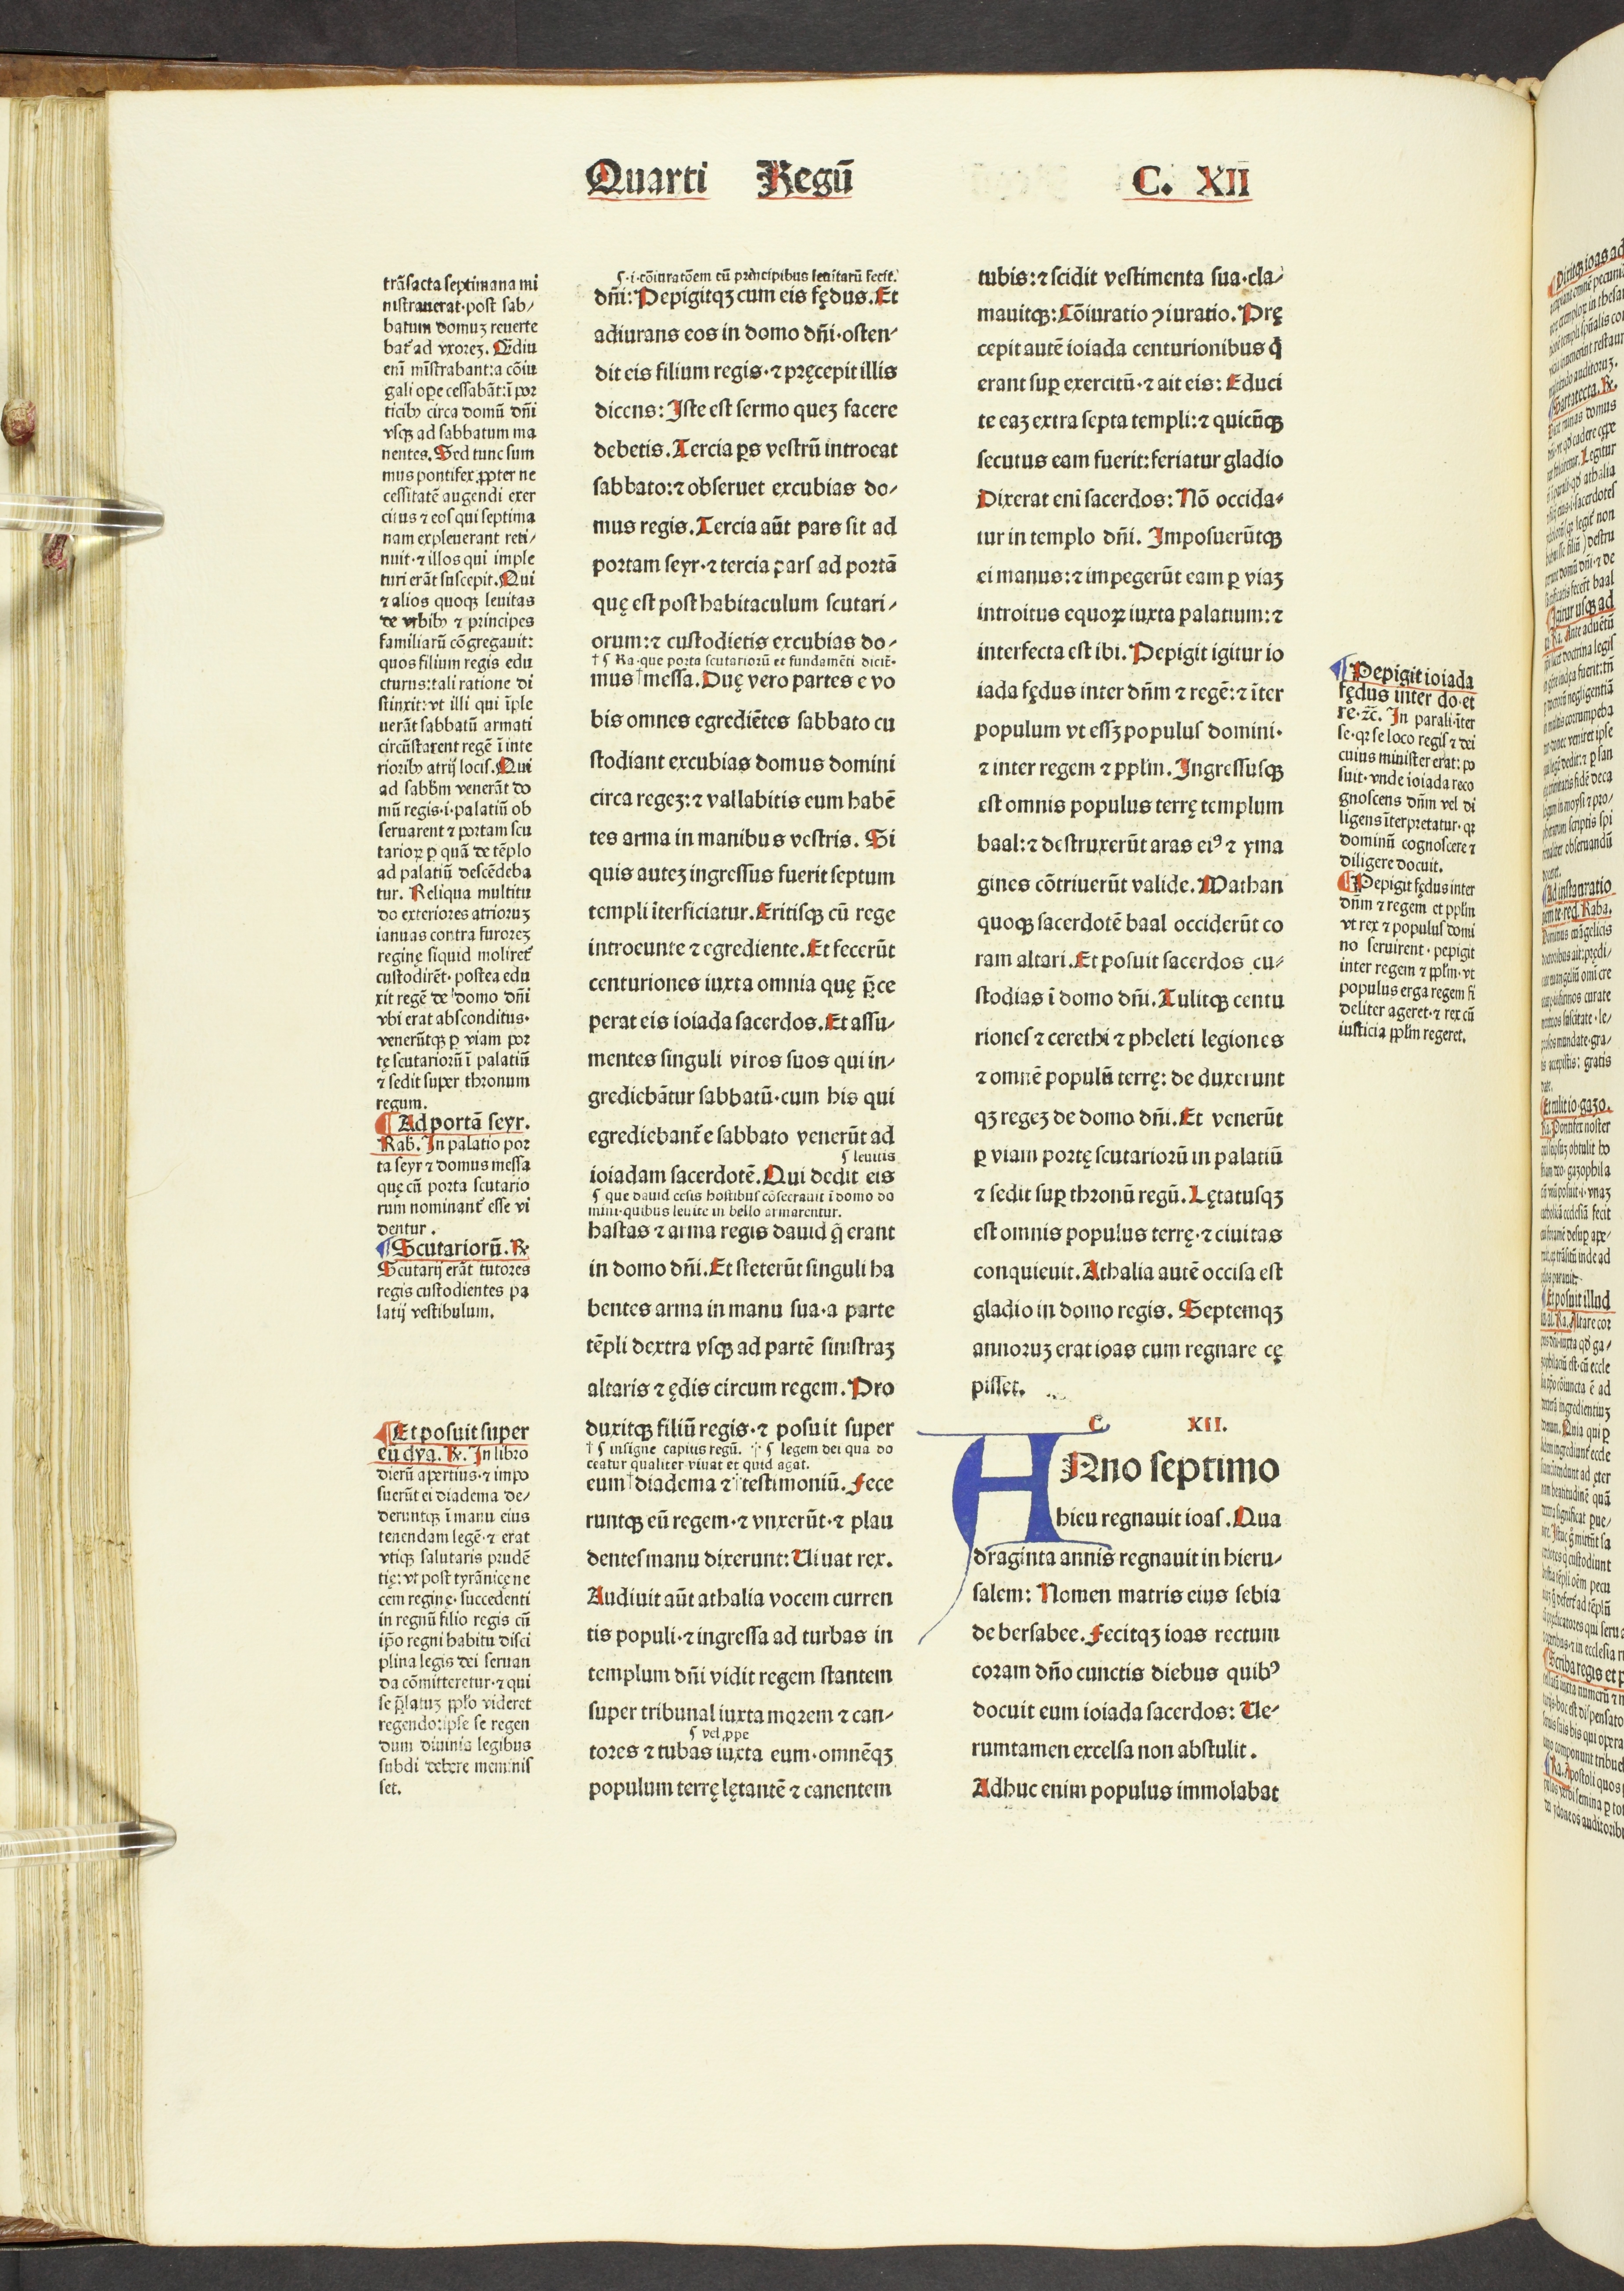 Quarti Regū C. XII
trāsacta septimana mi
nistrauerat·post sab/
batum domuʒ reuerte
bat᷑ ad vxoreʒ. Q̄diu
enī mīstrabant:a cōiu
gali oꝑe cessabāt:ī por
ticibꝰ circa domū dn̄i
vsqꝫ ad sabbatum ma
nentes. Sed tunc sum
mus pontifex ꝓpter ne
cessitatē augendi exer
citus ⁊ eos qui septima
nam expleuerant reti/
nuit·⁊ illos qui imple
turi erāt suscepit. Qui
⁊ alios quoqꝫ leuitas
de vrbibꝰ ⁊ principes
familiarū cōgregauit:
quos filium regis edu
cturus:tali ratione di
stinxit:vt illi qui īple
uerāt sabbatū armati
circūstarent regē ī inte
rioribꝰ atrij locis. Qui
ad sabbm̄ venerāt do
mū regis·i·palatiū ob
seruarent ⁊ portam scu
tarioꝝ ꝑ quā de tēplo
ad palatiū descēdeba
tur. Reliqua multitu
do exteriores atrioruʒ
ianuas contra furoreʒ
reginę siquid moliret᷑
custodirēt· postea edu
xit regē de domo dn̄i
vbi erat absconditus·
venerūtqꝫ ꝑ viam por
tę scutariorū ī palatiū
⁊ sedit super thronum
regum.
¶ Ad portā seyr.
Rab. In palatio por
ta seyr ⁊ domus messa
quę cū porta scutario
rum nominant᷑ esse vi
dentur.
¶ Scutariorū. ℞
Scutarij erāt tutores
regis custodientes pa
latij vestibulum.
¶ Et posuit super
eū dya. ℞. In libro
dierū apertius·⁊ impo
suerūt ei diadema de/
deruntqꝫ ī manu eius
tenendam legē·⁊ erat
vtiqꝫ salutaris prudē
tię:vt post tyrānicę ne
cem reginę· succedenti
in regnū filio regis cū
ip̄o regni habitu disci
plina legis dei seruan
da cōmitteretur·⁊ qui
se p̄latuʒ ppl̄o videret
regendo:ipse se regen
dum diuinis legibus
subdi debere meminis
set.
¶·i·cōiuratōem cū principibus leuitarū fecit.
dn̄i: Pepigitqʒ cum eis fędus. Et
adiurans eos in domo dn̄i·osten/
dit eis filium regis·⁊ pręcepit illis
dicens: Iste est sermo queʒ facere
debetis. Tercia ꝑs vestrū introeat
sabbato:⁊ obseruet excubias do/
mus regis. Tercia aūt pars sit ad
portam seyr·⁊ tercia pars ad portā
quę est post habitaculum scutari/
orum:⁊ custodietis excubias do/
† ¶ Ra·que porta scutariorū et fundamēti dicit᷑·
mus†messa. Duę vero partes e vo
bis omnes egrediētes sabbato cu
stodiant excubias domus domini
circa regeʒ:⁊ vallabitis eum habē
tes arma in manibus vestris. Si
quis auteʒ ingressus fuerit septum
templi īterficiatur. Eritisqꝫ cū rege
introeunte ⁊ egrediente. Et fecerūt
centuriones iuxta omnia quę p̄ce
perat eis ioiada sacerdos. Et assu/
mentes singuli viros suos qui in/
grediebātur sabbatū·cum his qui
egrediebant᷑ e sabbato venerūt ad
¶ leuitis
ioiadam sacerdotē. Qui dedit eis
¶ que dauid cesis hostibus cōsecrauit ī domo do
mini·quibus leuite in bello armarentur.
hastas ⁊ arma regis dauid q̄ erant
in domo dn̄i. Et steterūt singuli ha
bentes arma in manu sua·a parte
tēpli dextra vsqꝫ ad partē sinistraʒ
altaris ⁊ ędis circum regem. Pro
duxitqꝫ filiū regis·⁊ posuit super
† ¶ insigne capitis regū. † ¶ legem dei qua do
ceatur qualiter viuat et quid agat.
eum†diadema ⁊†testimoniū. Fece
runtqꝫ eū regem·⁊ vnxerūt·⁊ plau
dentes manu dixerunt: Viuat rex.
Audiuit aūt athalia vocem curren
tis populi·⁊ ingressa ad turbas in
templum dn̄i vidit regem stantem
super tribunal iuxta morem ⁊ can/
¶ vel ꝓpe
tores ⁊ tubas iuxta eum·omnēqʒ
populum terrę lętantē ⁊ canentem
tubis:⁊ scidit vestimenta sua·cla/
mauitqꝫ: Cōiuratio ꝯiuratio. Prę
cepit autē ioiada centurionibus q̄
erant suꝑ exercitū·⁊ ait eis: Educi
te eaʒ extra septa templi:⁊ quicūqꝫ
secutus eam fuerit:feriatur gladio
Dixerat enī sacerdos: Nō occida/
tur in templo dn̄i. Imposuerūtqꝫ
ei manus:⁊ impegerūt eam ꝑ viaʒ
introitus equoꝝ iuxta palatium:⁊
interfecta est ibi. Pepigit igitur io
iada fędus inter dn̄m ⁊ regē:⁊ īter
populum vt essʒ populus domini·
⁊ inter regem ⁊ ppl̄m. Ingressusqꝫ
est omnis populus terrę templum
baal:⁊ destruxerūt aras eiꝰ ⁊ yma
gines cōtriuerūt valide. Mathan
quoqꝫ sacerdotē baal occiderūt co
ram altari. Et posuit sacerdos cu/
stodias ī domo dn̄i. Tulitqꝫ centu
riones ⁊ cerethi ⁊ pheleti legiones
⁊ omnē populū terrę: de duxerunt
qʒ regeʒ de domo dn̄i. Et venerūt
ꝑ viam portę scutariorū in palatiū
⁊ sedit suꝑ thronū regū. Lętatusqʒ
est omnis populus terrę·⁊ ciuitas
conquieuit. Athalia autē occisa est
gladio in domo regis. Septemqʒ
annoruʒ erat ioas cum regnare cę
pisset.
C. XII.
ANno septimo
hieu regnauit ioas. Qua
draginta annis regnauit in hieru/
salem: Nomen matris eius sebia
de bersabee. Fecitqʒ ioas rectum
coram dn̄o cunctis diebus quibꝰ
docuit eum ioiada sacerdos: Ve/
rumtamen excelsa non abstulit.
Adhuc enim populus immolabat
¶ Pepigit ioiada
fędus inter do·et
re·⁊c̄. In parali·īter
se·qꝛ se loco regis ⁊ dei
cuius minister erat: po
suit·vnde ioiada reco
gnoscens dn̄m vel di
ligens īterpretatur·qꝛ
dominū cognoscere ⁊
diligere docuit.
¶ Pepigit fędus inter
dn̄m ⁊ regem et ppl̄m
vt rex ⁊ populus domi
no seruirent·pepigit
inter regem ⁊ ppl̄m·vt
populus erga regem fi
deliter ageret·⁊ rex cū
iusticia ppl̄m regeret.